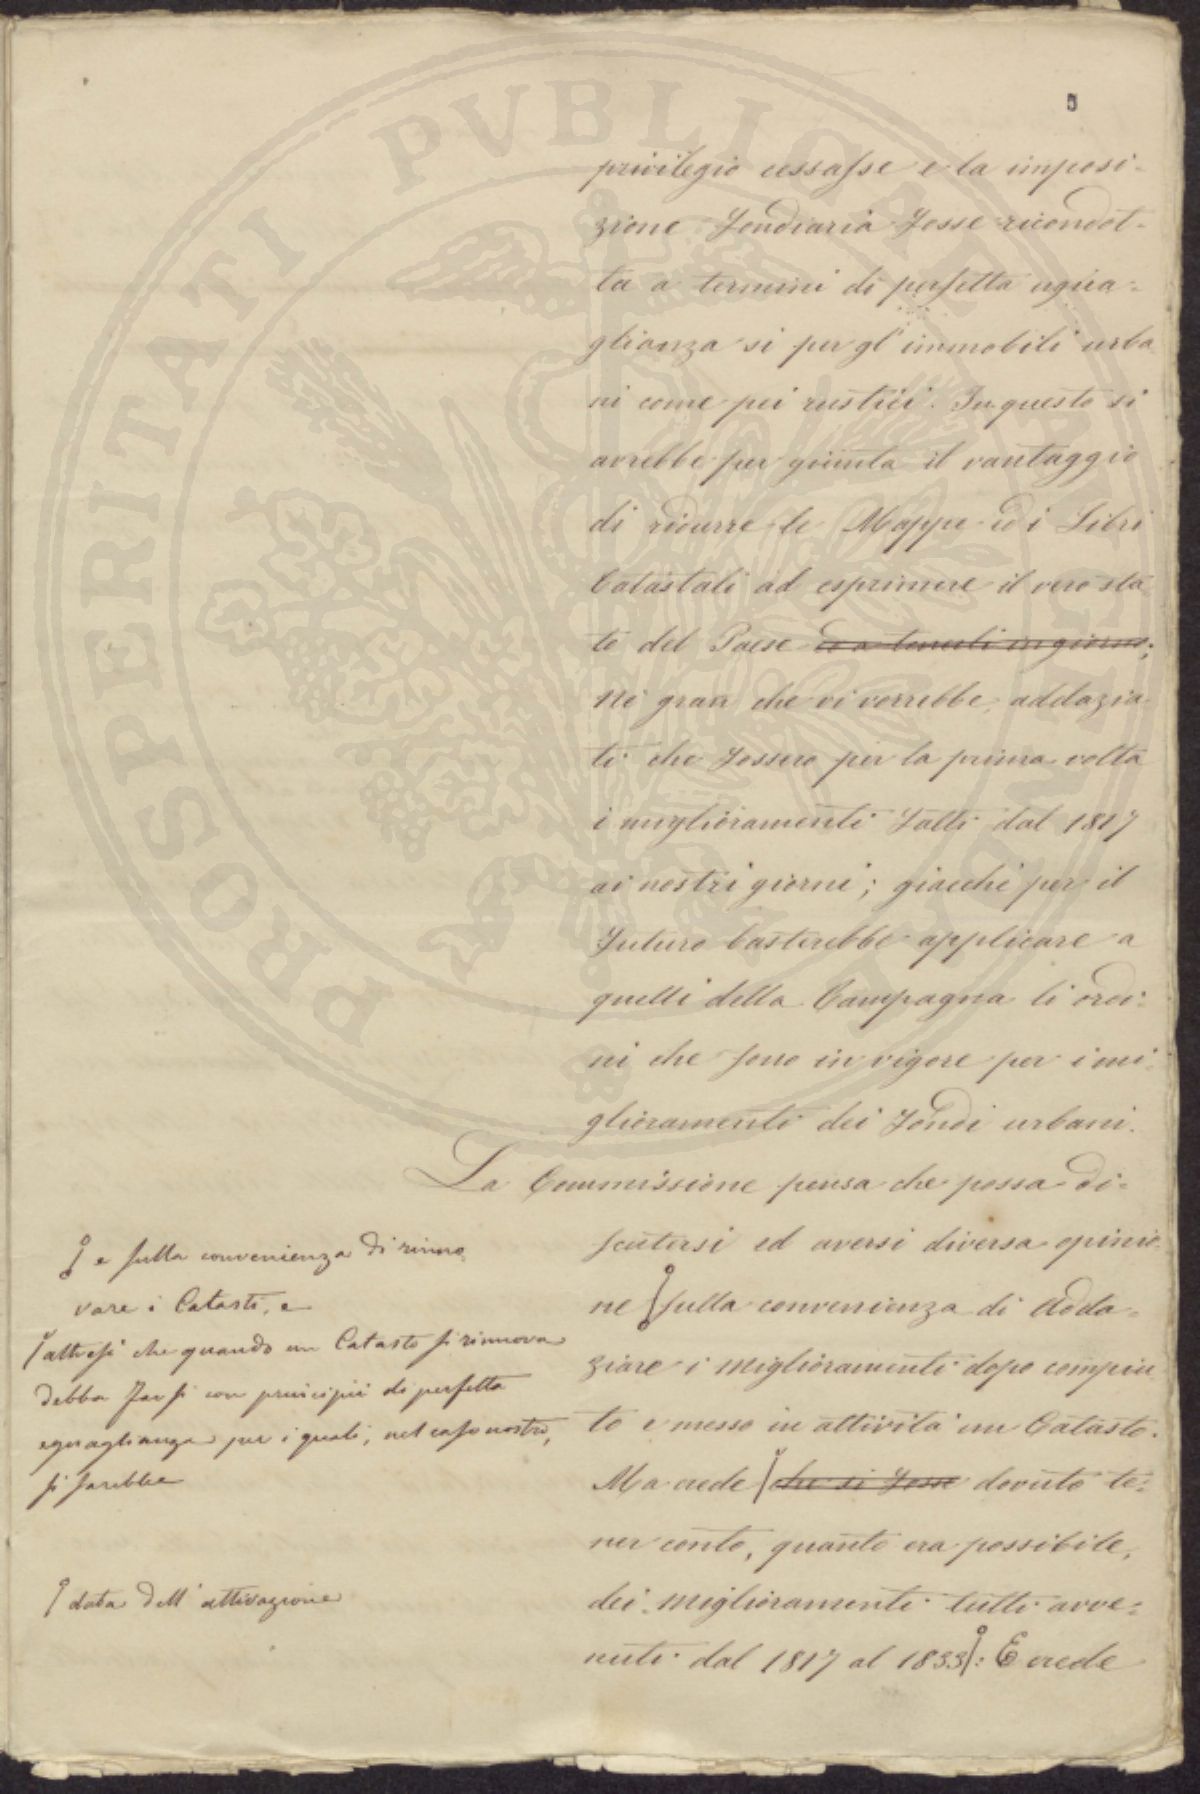 PROSPERITATI PVBLICAE AVGENDAE
5
privilegio cessasse e la imposi-
zione Fondiaria fosse ricondot-
ta a termini di perfetta ugua-
glianza si per gl' immobili urba
ni come pei rustici. In questo si
avrebbe per giunta il vantaggio
di ridurre le Mappe ed i Libri
Catastali ad esprimere il vero sta
to del Paese ed a tenerli in giorno;
Nè gran che vi vorrebbe, addazia-
ti che fossero per la prima volta
i miglioramenti fatti dal 1817
ai nostri giorni; giacchè per il
futuro basterebbe applicare a
quelli della Campagna li ordi-
ni che sono in vigore per i mi-
glioramenti dei fondi urbani.
La Commissione pensa che possa di-
scutersi ed aversi diversa opinio-
ne sulla convenienza di adda-
ziare i miglioramenti dopo compiu
to e messo in attività un Catasto.
Ma crede che si fosse dovuto te-
ner conto, quanto era possibile,
dei miglioramenti tutti avve-
nuti dal 1817 al 1833: E crede
e sulla convenienza di rinno
vare i Catasti, e
altresì che quando un Catasto si rinnova
debba farsi con principii di perfetta
eguaglianza per i quali, nel caso nostro,
si sarebbe
data dell' attivazione